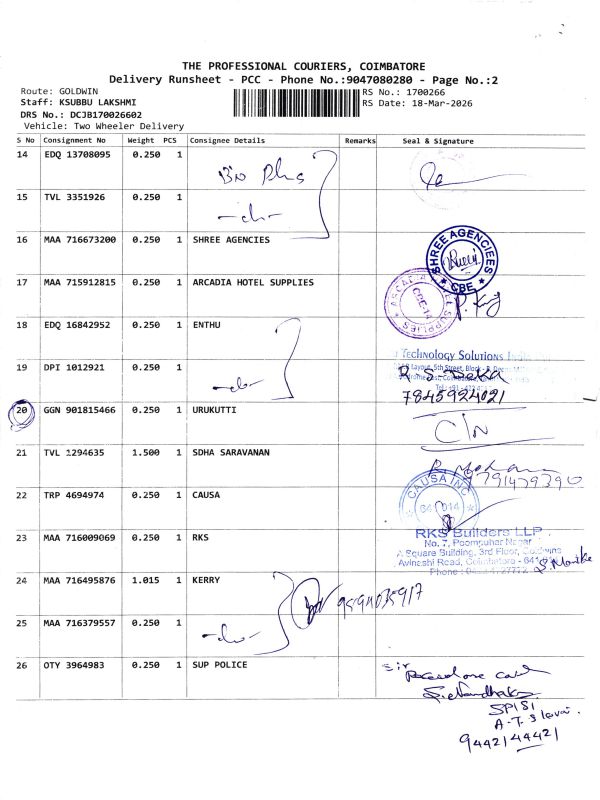 THE PROFESSIONAL COURIERS, COIMBATORE
Delivery Runsheet - PCC - Phone No.:9047080280 - Page No.:2
Route: GOLDWIN
Staff: KSUBBU LAKSHMI
DRS No.: DCJB170026602
Vehicle: Two Wheeler Delivery
RS No.: 1700266
RS Date: 18-Mar-2026
S No Consignment No Weight PCS Consignee Details Remarks Seal & Signature
14 EDQ 13708095 0.250 1
15 TVL 3351926 0.250 1
16 MAA 716673200 0.250 1 SHREE AGENCIES
SHREE AGENCIEES
CBE
17 MAA 715912815 0.250 1 ARCADIA HOTEL SUPPLIES
18 EDQ 16842952 0.250 1 ENTHU
Technology Solutions
19 DPI 1012921 0.250 1
7845924021
20 GGN 901815466 0.250 1 URUKUTTI
C/N
21 TVL 1294635 1.500 1 SDHA SARAVANAN
22 TRP 4694974 0.250 1 CAUSA
CAUSA INC
641 014
23 MAA 716009069 0.250 1 RKS
RKS Builders LLP
No. 7, Poompuhar Nagar
A Square Building, 3rd Floor, Goldwins
Avinashi Road, Coimbatore - 641
Phone :
24 MAA 716495876 1.015 1 KERRY
25 MAA 716379557 0.250 1
26 OTY 3964983 0.250 1 SUP POLICE
Sir
9442144421